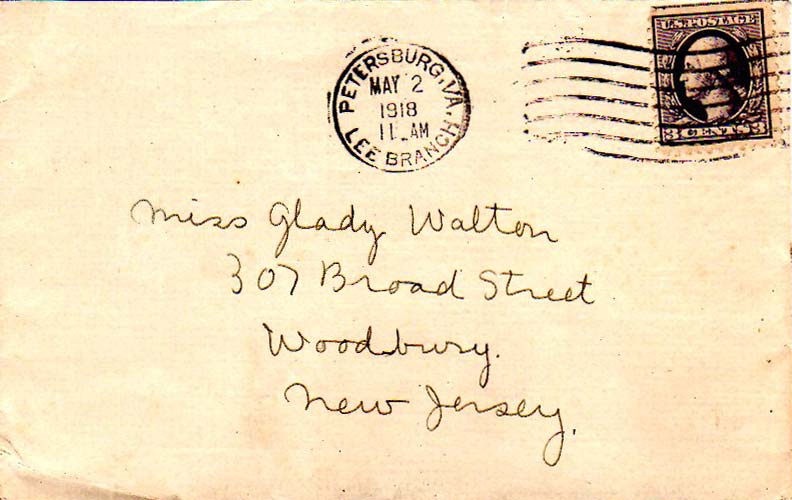 U.S. POSTAGE
3 CENTS 3
PETERSBURG, VA.
MAY 2
1918
11 AM
LEE BRANCH.
Miss Glady Walton
307 Broad Street
Woodbury.
New Jersey.